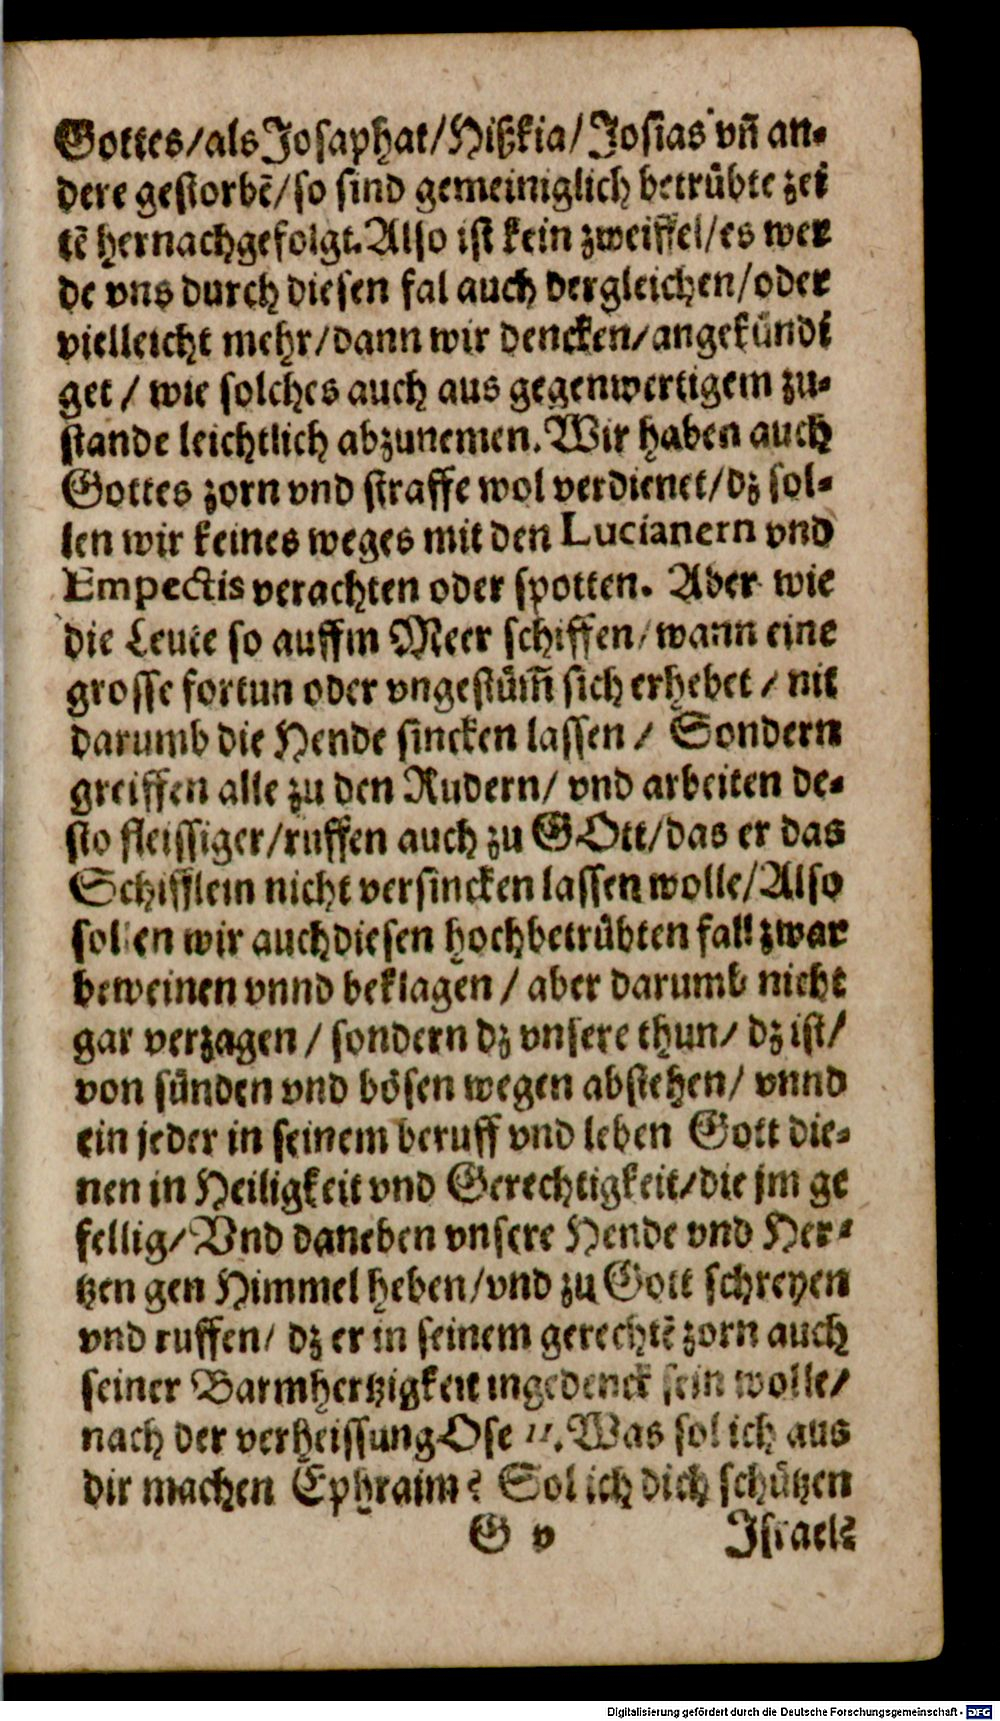 Gottes/als Josaphat/Hißkia/Josias vñ an-
dere gestorbẽ/so sind gemeiniglich betrübte zei
tẽ hernachgefolgt. Also ist kein zweiffel/es wer
de vns durch diesen fal auch dergleichen/oder
vielleicht mehr/dann wir dencken/angekündi
get / wie solches auch aus gegenwertigem zu-
stande leichtlich abzunemen. Wir haben auch
Gottes zorn vnd straffe wol verdienet/dz sol-
len wir keines weges mit den Lucianern vnd
Empectis verachten oder spotten. Aber wie
die Leute so auffm Meer schiffen/wann eine
grosse fortun oder vngestüm̃ sich erhebet / nit
darumb die Hende sincken lassen / Sondern
greiffen alle zu den Rudern/ vnd arbeiten de-
sto fleissiger/ruffen auch zu GOtt/das er das
Schifflein nicht versincken lassen wolle/Also
sollen wir auch diesen hochbetrübten fall zwar
beweinen vnnd beklagen / aber darumb nicht
gar verzagen / sondern dz vnsere thun/ dz ist/
von sünden vnd bösen wegen abstehen/ vnnd
ein jeder in seinem beruff vnd leben Gott die-
nen in Heiligkeit vnd Gerechtigkeit/die jm ge
fellig/ Vnd daneben vnsere Hende vnd Her-
tzen gen Himmel heben/vnd zu Gott schreyen
vnd ruffen/ dz er in seinem gerechtẽ zorn auch
seiner Barmhertzigkeit ingedenck sein wolle/
nach der verheissung Ose 11. Was sol ich aus
dir machen Ephraim? Sol ich dich schützen
G v Israel?
Digitalisierung gefördert durch die Deutsche Forschungsgemeinschaft - DFG